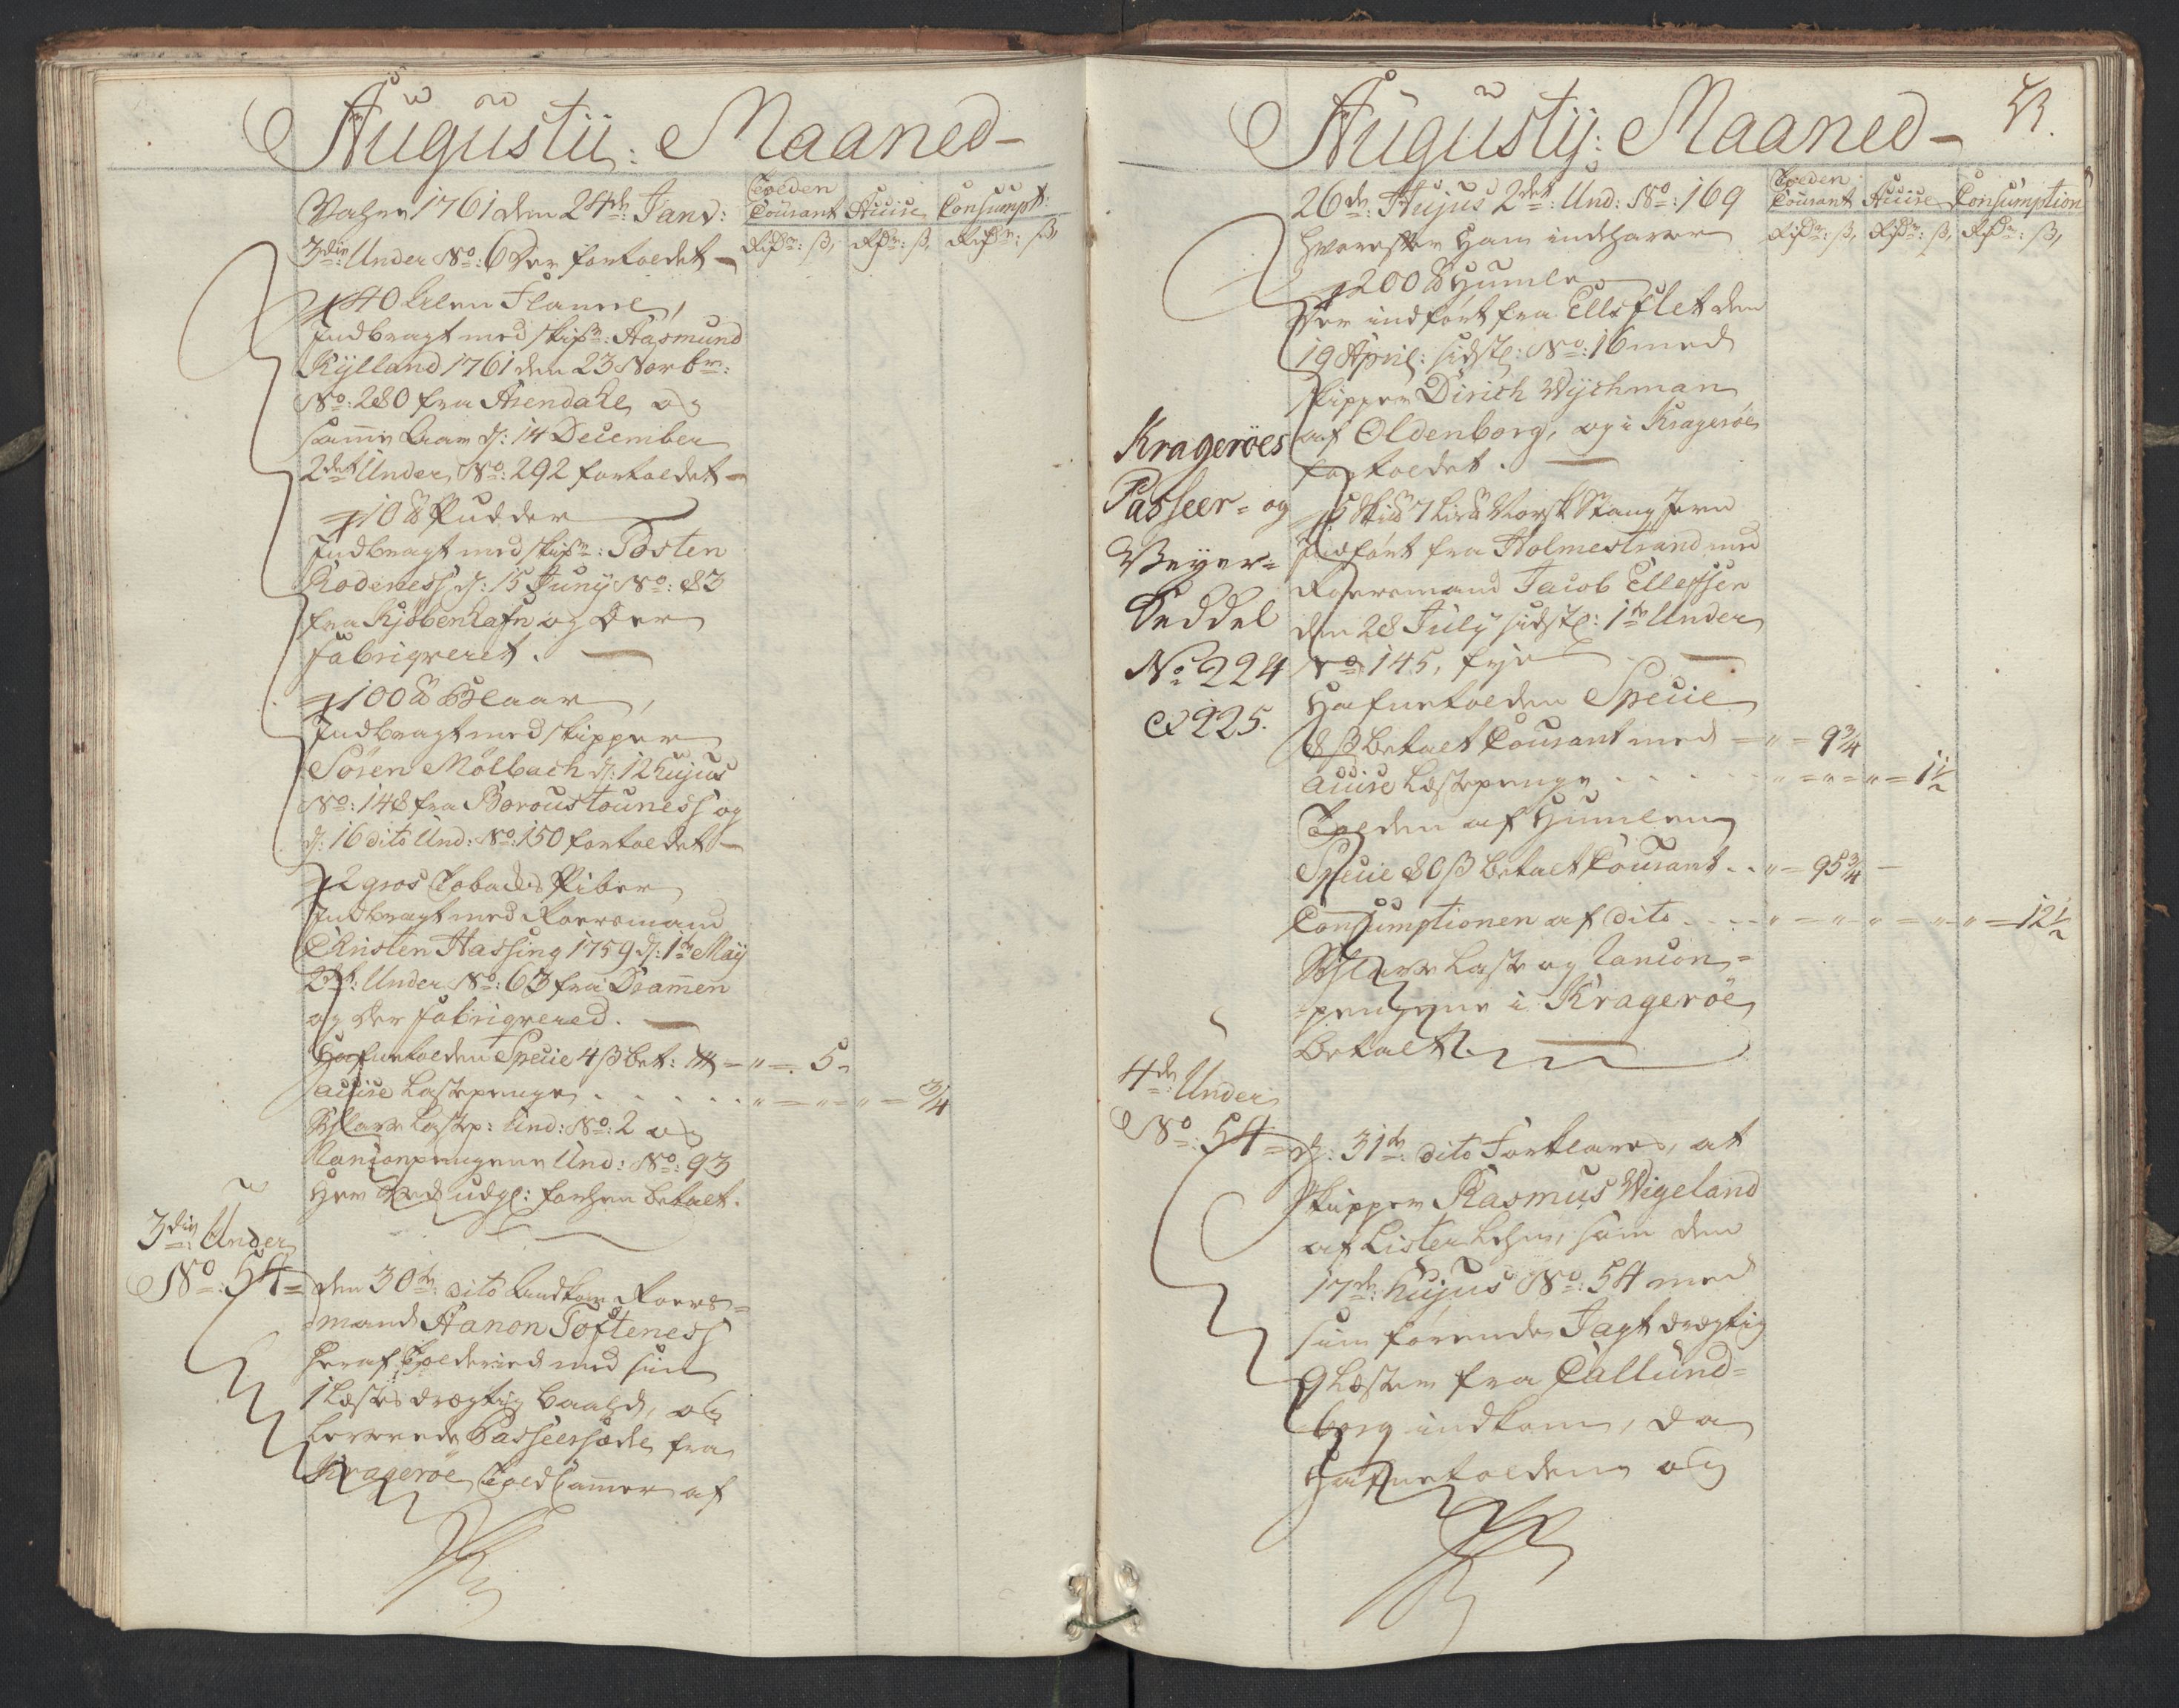 Augustii: Maaned-
Tolden
Courant Accise Consumpt:
Rixdr: ß, Rdr: ß, Rixdr: ß,
1761 den 24de: Janv:
3die: Under No: 6 Der fortoldet -
40 Alen Flanel,
Indbragt med skipr: Aasmund
Kylland 1761 den 23 Novbr:
No: 280 fra Arendahl, og
samme Aar d: 14 December
2det Under No: 292 fortoldet -
10 ℔ Pudder
Indbragt med skipr: Tosten
Rodeness d: 15 Juny No: 83
fra Kjøbenhafn og Der
fabriqveret. -
100 ℔ Blaar,
Indbragt med skipper
Søren Mølbach d: 12 hujus
No: 148 fra Boroustouness og
d: 16 dito Und: No: 150 fortoldet -
2 gros Tobacks Piber
Indbragt med Roersmand
Christen Hassing 1759 d: 1te May
2det: Under No: 63 fra Dramen
og der fabriqvered. -
Hafnetolden Specie 4 ß bet: = " = 5 -
accise Lastepenge . . . . . . " = " = " = 3/4
Slave Lastep: Und: No: 2 og
Rancionpengene Und: No: 93
Her Ved udgl: forhen betalt.
3die: Under
No: 54 = den 30te: dito indkom Roers=
mand Aanon Tofteness
heraf Tolderied med sin
1 Læster drægtig baad, og
leverede Passeersædel fra
Kragerøe Told Camer af
Augustij: Maaned-
Tolden
Courant Accise Consumption
Rixdr: ß, Rixdr: ß, Rixdr: ß,
26de: Hujus 2det: Und: No: 169
hvorefter ham indehaver
200 ℔ Humle
Der indført fra Ellsflet den
19 April: sidstl: No: 16 med
skipper Dirich Wychman
af Oldenborg, og i Kragerøe
fortoldet. -
Kragerøes
Passeer= og
Veyer=
Seddel
No 224
& 225.
5 Sk℔ 7 Lis℔ Norsk Stang Jern
Indført fra Holmestrand med
Roersmand Jacob Ellefsen
den 28 July sidstl: 1te Under
No 145,
Hafnetolden Specie
8 ß betalt Courant med = " = 9 3/4
accise Lastepenge . . . . . " = " = " = 1 1/2
Tolden af Humlen
Specie 80 ß betalt Courant . . " = 95 3/4 -
Consumptionen af dito . . . . " = " = " = " = " = 12 1/2
Slave Laste og Rancion=
=pengene i Kragerøe
betalt.
4de: Under
No: 54 = d: 31te: dito Forklares, at
skipper Rasmus Wigeland
af Lister Lehn, som den
17de: hujus No: 54 med
sin førende Jagt drægtig
9 Læster fra Callund=
borg indkom, da
Hafnetolden og